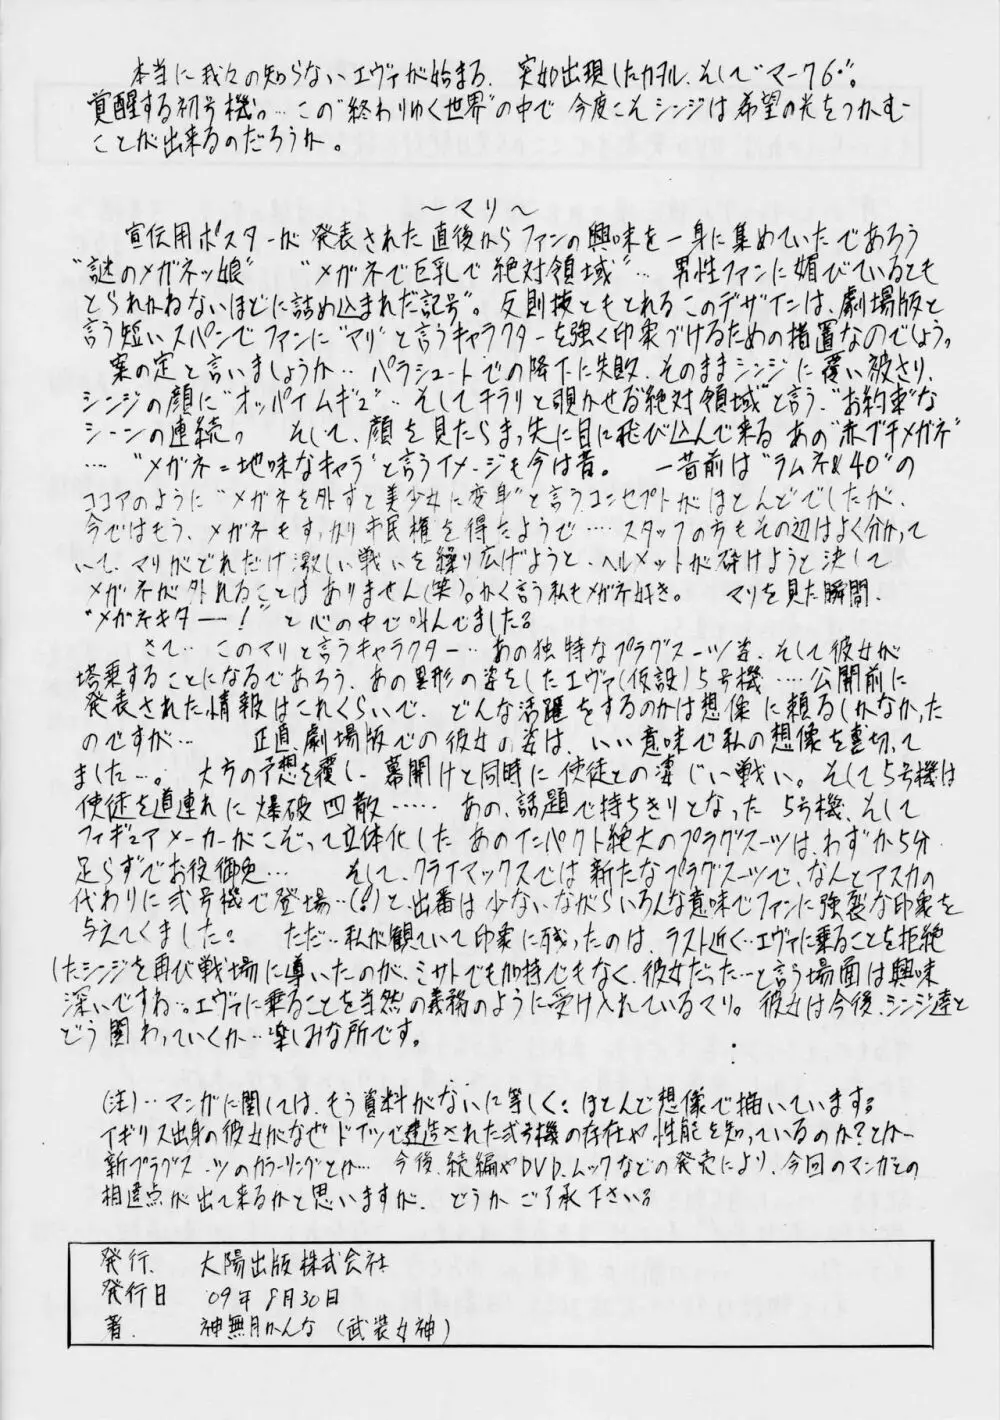 本当に我々の知らないエヴァが始まる。突如出現したカヲル、そして"マーク6"。
覚醒する初号機。…この"終わりゆく世界"の中で 今度こそシンジは希望の光をつかむ
ことが出来るのだろうか。
～マリ～
宣伝用ポスターが発表された直後からファンの興味を一身に集めていたであろう
"謎のメガネッ娘" "メガネで巨乳で絶対領域"… 男性ファンに媚びているとも
とられかねないほどに詰め込まれた"記号"。反則技ともとれるこのデザインは、劇場版と
言う短いスパンでファンに"マリ"と言うキャラクターを強く印象づけるための措置なのでしょう。
案の定と言いましょうか… パラシュートでの降下に失敗、そのままシンジに覆い被さり、
シンジの顔に"オッパイムギュ"… そしてチラリと覗かせる"絶対領域"と言う、"お約束"な
シーンの連続。 そして、顔を見たらまっ先に目に飛び込んで来るあの"赤ブチメガネ"
… "メガネ＝地味なキャラ"と言うイメージも今は昔。 一昔前は"ラムネ&40"の
ココアのように"メガネを外すと美少女に変身"と言うコンセプトがほとんどでしたが、
今ではもう、メガネもすっかり市民権を得たようで…. スタッフの方もその辺はよく分かって
いて、マリがどれだけ激しい戦いを繰り広げようと、ヘルメットが砕けようと決して
メガネが外れることはありません(笑)。かく言う私もメガネ好き。 マリを見た瞬間、
"メガネキター！"と心の中で叫んでました。
さて… このマリと言うキャラクター… あの独特なプラグスーツ姿、そして彼女が
搭乗することになるであろう、あの異形の姿をしたエヴァ(仮設)5号機 …. 公開前に
発表された情報はこれくらいで、どんな活躍をするのかは想像に頼るしかなかった
のですが… 正直、劇場版での彼女の姿は、いい意味で私の想像を裏切って
ました…。 大方の予想を覆し、幕開けと同時に使徒との凄じい戦い。そして5号機は
使徒を道連れに爆破四散…… あの、話題で持ちきりとなった5号機、そして
フィギュアメーカーがこぞって立体化したあのインパクト絶大のプラグスーツは、わずか5分
足らずでお役御免… そして、クライマックスでは新たなプラグスーツで、なんとアスカの
代わりに弐号機で登場…(!?)と、出番は少ないながらいろんな意味でファンに強裂な印象を
与えてくました。 ただ… 私が観ていて印象に残ったのは、ラスト近く… エヴァに乗ることを拒絶
したシンジを再び戦場に導いたのが、ミサトでも加持でもなく、彼女だった…と言う場面は興味
深いですね。エヴァに乗ることを当然の義務のように受け入れているマリ。彼女は今後、シンジ達と
どう関わっていくか… 楽しみな所です。
(注)… マンガに関しては、もう資料がないに等しく、ほとんど想像で描いています。
イギリス出身の彼女がなぜドイツで建造された弐号機の存在や性能を知っているのか？とか
新プラグスーツのカラーリングとか… 今後、続編やDVD、ムックなどの発売により、今回のマンガとの
相違点が出て来るかと思いますが、どうかご了承下さい。
発行. 大陽出版株式会社
発行日 '09年8月30日
著. 神無月かんな (武装女神)